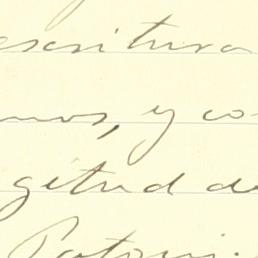 escritura
mos, y co-
gitud de